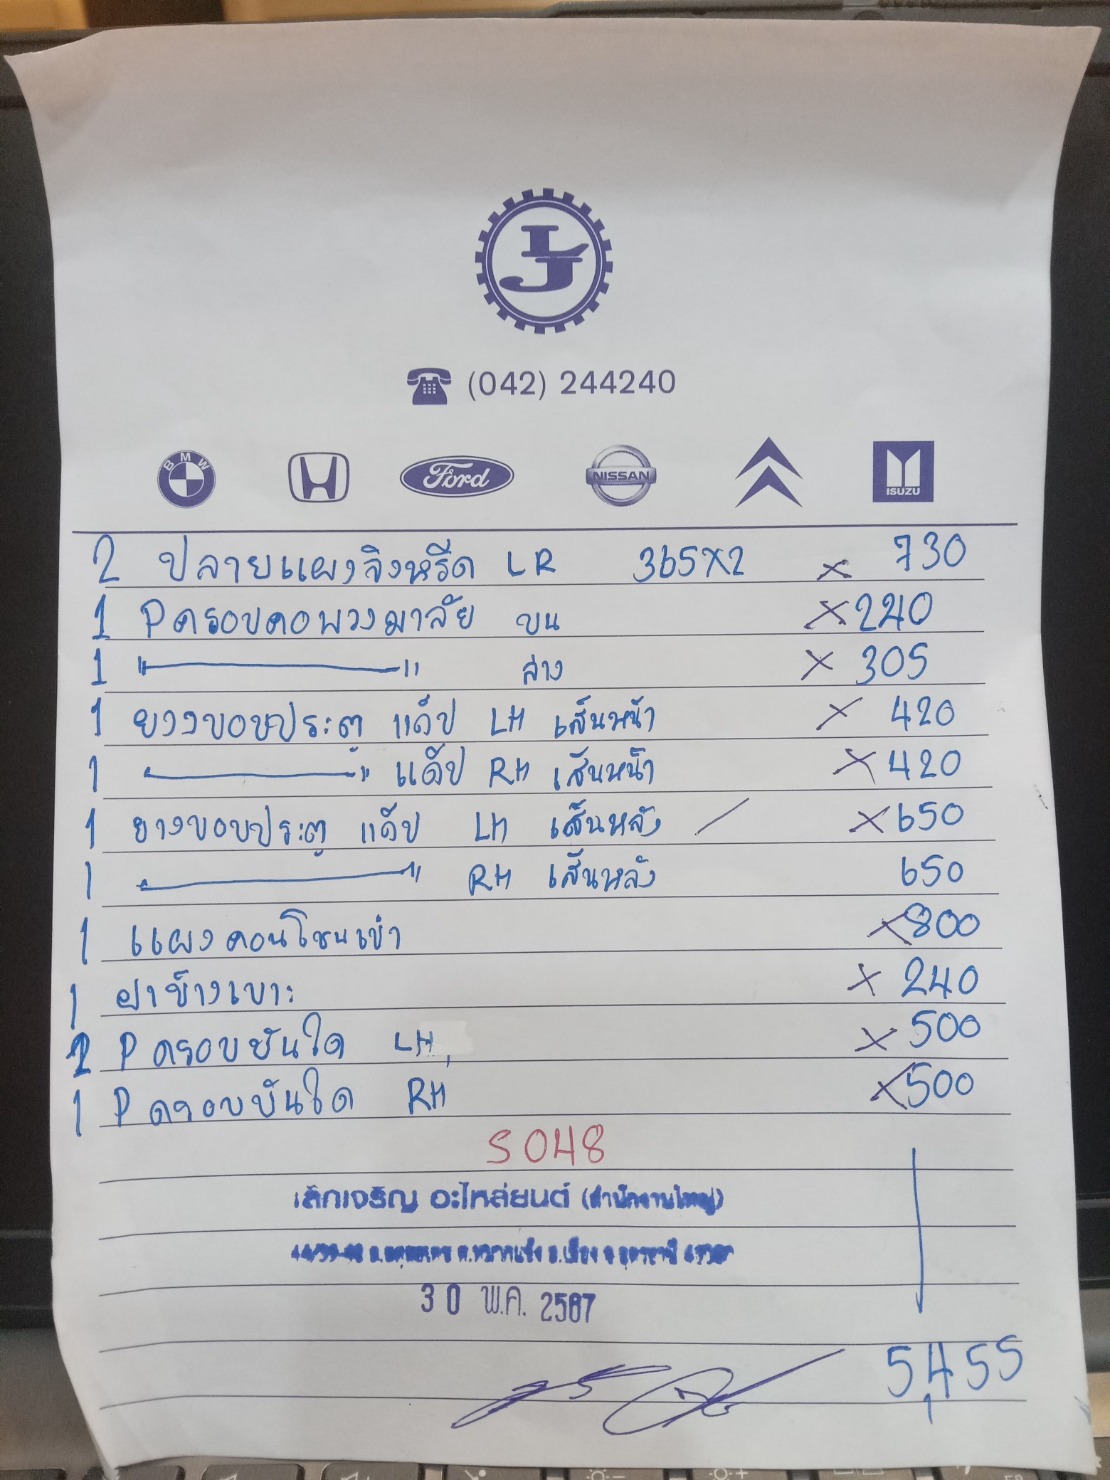 LJ
(042) 244240
BMW Ford NISSAN ISUZU
2 ปลายแผงจิงหรีด LR 365x2 x 730
1 Pครอบคอพวงมาลัย บน x 240
1 "———" ล่าง x 305
1 ยางขอบประตู แค็ป LH เส้นหน้า x 420
1 "———" แค็ป RH เส้นหน้า x 420
1 ยางขอบประตู แค็ป LH เส้นหลัง / x 650
1 "———" RH เส้นหลัง 650
1 แผงคอนโซนเข่า x 800
1 ฝาข้างเบาะ x 240
P ครอบบันใด LH x 500
1 P ครอบบันใด RH x 500
S048
เล็กเจริญ อะไหล่ยนต์ (สำนักงานใหญ่)
30 พ.ค. 2567
5,455